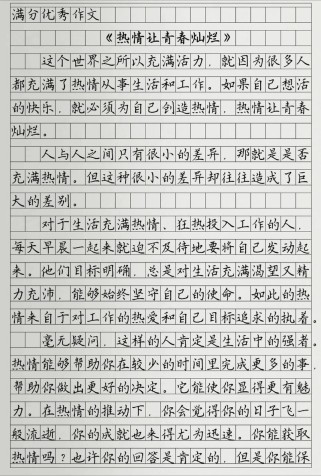 满分优秀作文
《热情让青春灿烂》
这个世界之所以充满活力，就因为很多人
都充满了热情从事生活和工作。如果自己想活
的快乐，就必须为自己创造热情，热情让青春
灿烂。
人与人之间只有很小的差异，那就是是否
充满热情。但这种很小的差异却往往造成了巨
大的差别。
对于生活充满热情、狂热投入工作的人，
每天早晨一起来就迫不及待地要将自己发动起
来。他们目标明确，总是对生活充满渴望又精
力充沛，能够始终坚守自己的使命。如此的热
情来自于对工作的热爱和自己目标追求的执着。
毫无疑问，这样的人肯定是生活中的强者。
热情能够帮助你在较少的时间里完成更多的事，
帮助你做出更好的决定。它能使你显得更有魅
力。在热情的推动下，你会觉得你的日子飞一
般流逝，你的成就也来得尤为迅速。你能获取
热情吗？也许你的回答是肯定的，但是你能保